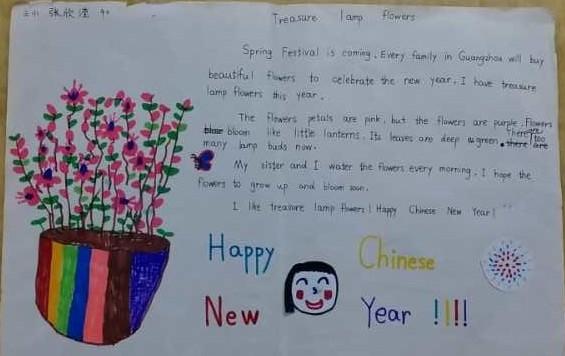 张欣滢
Treasure lamp flowers
Spring Festival is coming. Every family in Guangzhou will buy
beautiful flowers to celebrate the new year. I have treasure
lamp flowers this year.
The flowers petals are pink, but the flowers are purple. Flowers
bloom like little lanterns. Its leaves are deep green. There are too
many lamp buds now.
My sister and I water the flowers every morning. I hope the
flowers to grow up and bloom soon.
I like treasure lamp flowers! Happy Chinese New Year!
Happy Chinese
New Year !!!!